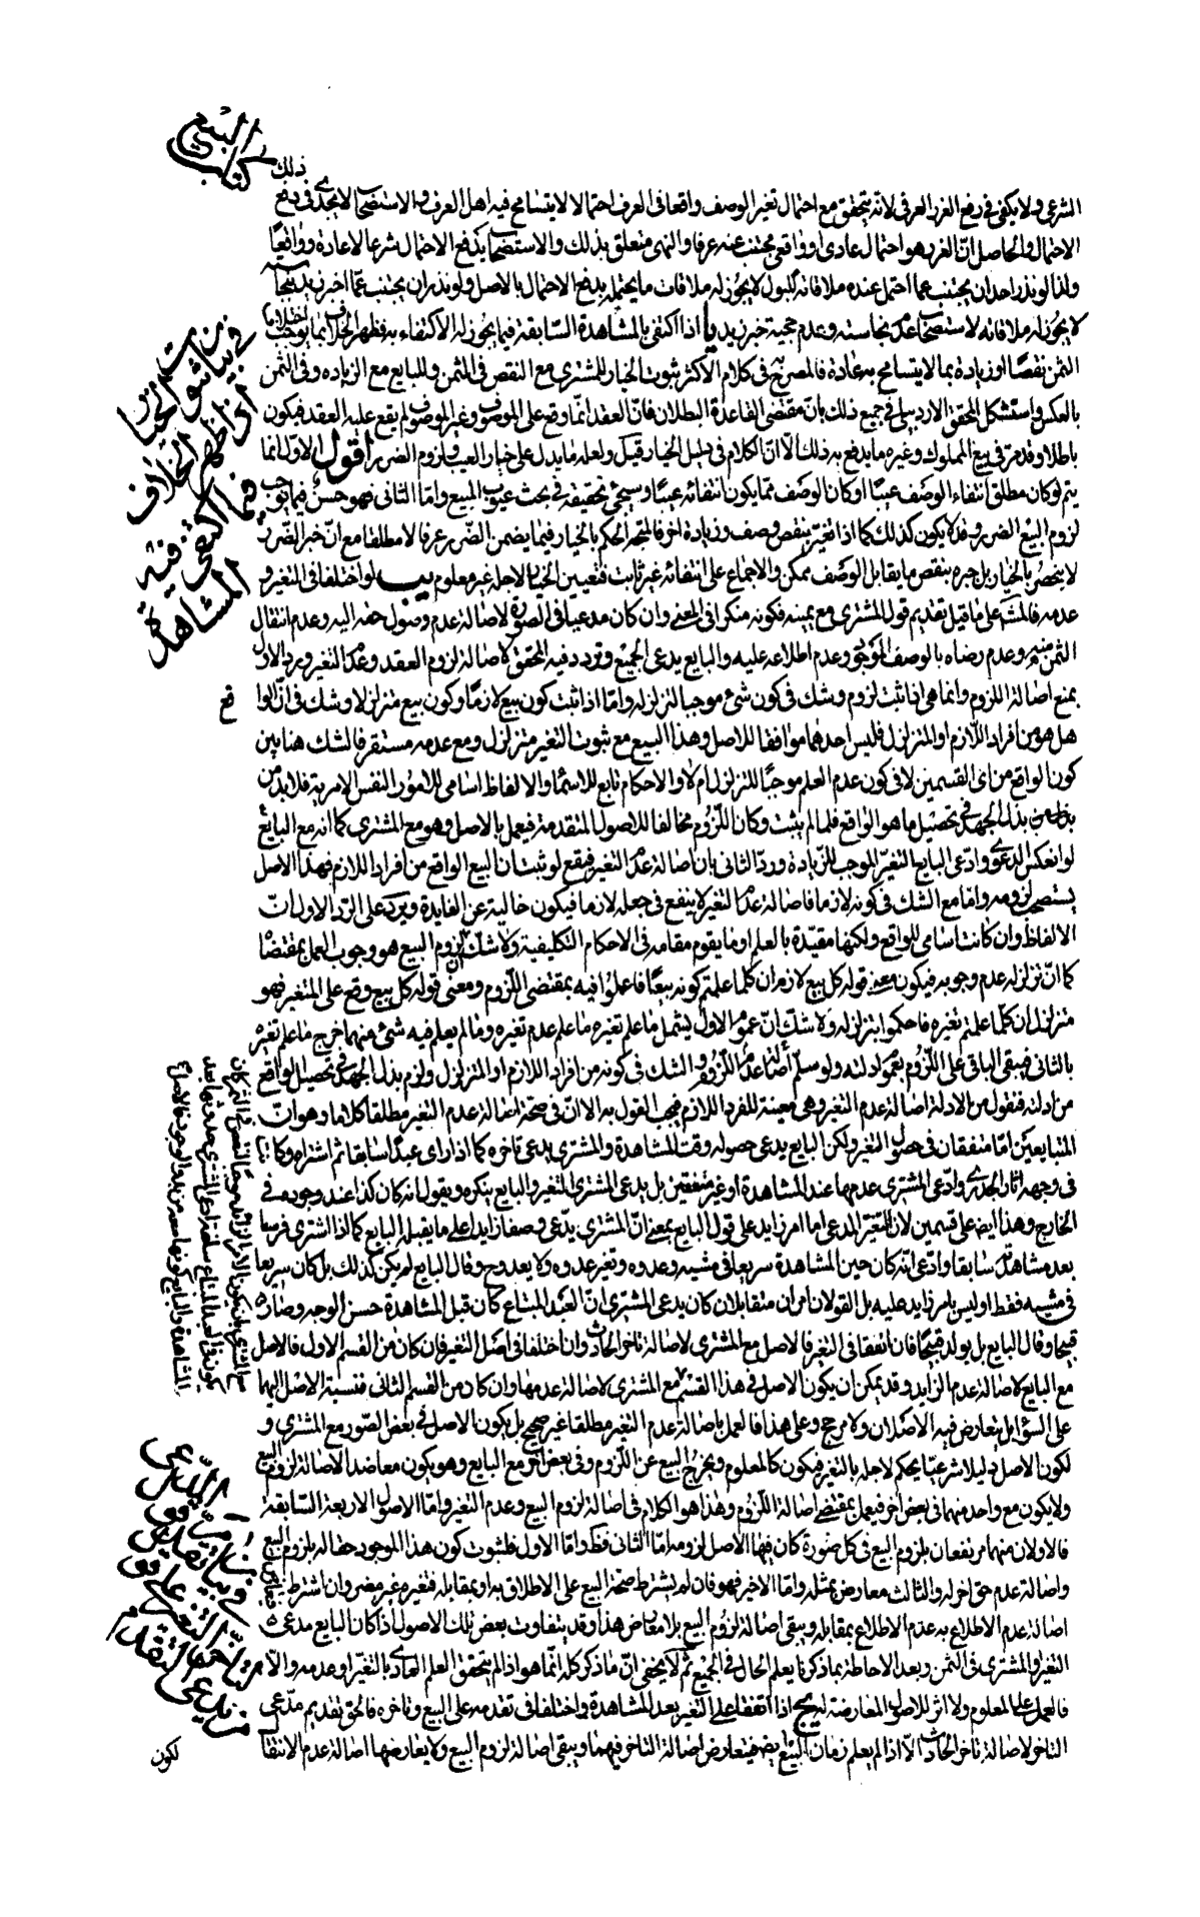 كتاب البيع
ذلك
الشرعى ولا يكفى فى رفع الغرر العرفى لانه يتحقق مع احتمال تغير الوصف واقعا فى العرف احتمالا لا يتسامح فيه اهل العرف والاستصحاب لا يجدى فى دفع
الاحتمال والحاصل ان الغرر هو احتمال عادى او واقعى مجتنب عنه عرفا والنهى متعلق بذلك والاستصحاب يدفع الاحتمال شرعا لا عادة وواقعيا
ولذا لو نذر احد ان يجتنب عما احتمل عنده ملاقاته للبول لا يجوز له ملاقات ما يحتمله بدفع الاحتمال بالاصل ولو نذر ان يجتنب عما اخبر زيد بنجاسته
لا يجوز له ملاقاته لاستصحاب عدم نجاسته وعدم حجية خبر زيد اذا اكتفى بالمشاهدة السابقة فيما يجوز له الاكتفاء به فظهر الخلاف بما يوجب اختلاف
الثمن نقصا او زيادة بما لا يتسامح به عادة فالمصرح به فى كلام الاكثر ثبوت الخيار للمشترى مع النقص فى المثمن وللبايع مع الزياده وفى الثمن
بالعكس واستشكل المحقق الاردبيلى فى جميع ذلك بان مقتضى القاعدة البطلان فان العقد انما وقع على الموصوف وغير الموصوف لم يقع عليه العقد فيكون
باطلا وقد مر فى بيع المملوك وغيره ما يدفع به ذلك الا ان الكلام فى دليل الخيار وقيل ولعله ما يدل على خيار العيب ولزوم الضرر اقول الاول انما
يتم لو كان مطلق انتفاء الوصف عيبا او كان الوصف مما يكون انتفائه عيبا وسيجئ تحقيقه فى بحث عيوب المبيع واما الثانى فهو حسن فيما يوجب
لزوم البيع الضرر وقد لا يكون كذلك كما اذا تغير بنقص وصف وزيادة اخر فالمتجه الحكم بالخيار فيما يضمن الضرر عرفا لا مطلقا مع ان خبر الضرر
لا ينحصر بالخيار بل جبره بنقص ما يقابل الوصف ممكن والاجماع على انتفائه غير ثابت فتعيين الخيار لاجله غير معلوم ب لو اختلفا فى التغير و
عدمه فالمشهور على ما قيل تقديم قول المشترى مع يمينه فكونه منكرا فى المعنى وان كان مدعيا فى الصورة لاصالة عدم وصول حقه اليه وعدم انتقال
الثمن منه وعدم رضاه بالوصف الموجود وعدم اطلاعه عليه والبايع يدعى الجميع وتردد فيه المحقق لاصالة لزوم العقد وعدم التغير ويرد الاول
بمنع اصالة اللزوم وانما هى اذا ثبت لزوم وشك فى كون شئ موجبا لتزلزله واما اذا ثبت كون بيع لازما وكون بيع متزلزلا وشك فى ان الواقع
هل هو من افراد اللازم او المتزلزل فليس احدهما موافقا للاصل وهذا البيع مع ثبوت التغير متزلزل ومع عدمه مستقر فالشك هنا بين
كون الواقع من اى القسمين لا فى كون عدم العلم موجبا للتزلزل ام لا والاحكام تابع للاسماء والالفاظ اسامى للامور النفس الامرية فلا بد من
بذل الجهد فى تحصيل ما هو الواقع فلما لم يثبت وكان اللزوم مخالفا للاصول المتقدمة فيعمل بالاصل وهو مع المشترى كما انه مع البايع
لو انعكس الدعوى وادعى البايع التغير الموجب للزيادة ورد الثانى بان اصالة عدم التغير فيقع لو ثبت ان البيع الواقع من افراد اللازم فهذا الاصل
يستصحب لزومه واما مع الشك فى كونه لازما فاصالة عدم التغير لا ينفع فى جعله لازما فيكون خالية عن الفايدة ويرد على الرد الاول ان
الالفاظ وان كانت اسامى للواقع ولكنها مقيدة بالعلم او ما يقوم مقامه فى الاحكام التكليفية ولا شك ان لزوم البيع هو وجوب العمل بمقتضاه
كما ان تزلزله عدم وجوبه فيكون معنى قوله كل بيع لازم ان كلما علمتم كونه بيعا فاعملوا فيه بمقتضى اللزوم ومعنى قوله كل بيع وقع على المتغير فهو
متزلزل ان كلما علمتم تغيره فاحكموا بتزلزله ولا شك ان عموم الاول يشمل ما علم تغيره ما علم عدم تغيره وما لم يعلم فيه شئ منهما خرج ما علم تغيره
بالثانى فيبقى الباقى على اللزوم بعموم ادلته ولو سلم اصالة عدم اللزوم والشك فى كونه من افراد اللازم او المتزلزل ولزم بذل الجهد فى تحصيل الواقع
من ادلته فنقول من الادلة اصالة عدم التغير وهى معينة للفرد اللازم فيجب القول به الا ان فى صحة اصالة عدم التغير مطلقا كلاما وهو ان
المتبايعين اما متفقان فى حصول التغير ولكن البايع يدعى حصوله وقت المشاهدة والمشترى يدعى تاخره كما اذا راى عبدا سابقا ثم اشتراه وكان
فى وجهه اثار الجدرى وادعى المشترى عدمها عند المشاهدة او غير متفقين بل يدعى المشترى التغير والبايع ينكره ويقول انه كان كذا عند وجوده فى
الخارج وهذا ايضا على قسمين لان التغير المدعى اما امر زايد على قول البايع بمعنى ان المشترى يدعى وصفا زايدا على ما يقبله البايع كما اذا اشترى فرسا
بعد مشاهدته سابقا وادعى انه كان حين المشاهدة سريعا فى مشيه وعدوه وتغير عدوه ولا يعدو ح وقال البايع لم يكن كذلك بل كان سريعا
فى مشيه فقط او ليس بامر زايد عليه بل القولان امران متقابلان كان يدعى المشترى ان العبد المبتاع كان قبل المشاهدة حسن الوجه وصار
قبيحا وقال البايع بل يولد قبيحا فان اتفقا فى التغير فالاصل مع المشترى لاصالة تاخر الحادث وان اختلفا فى اصل التغير فان كان من القسم الاول فالاصل
مع البايع لاصالة عدم الزايد وقد يمكن ان يكون الاصل فى هذا القسم مع المشترى لاصالة عدمها وان كان من القسم الثانى فنسبة الاصل اليهما
على السؤال يتعارض فيه الاصلان ولا مرجح وعلى هذا فالعمل باصالة عدم التغير مطلقا غير صحيح بل يكون الاصل فى بعض الصور مع المشترى و
لكون الاصل دليلا شرعيا يحكم لاجله بالتغير فيكون كالمعلوم ويخرج البيع عن اللزوم وفى بعض اخر مع البايع وهو يكون معاضدا لاصالة لزوم البيع
ولا يكون مع واحد منهما فى بعض اخر فيعمل بمقتضى اصالة اللزوم وهذا هو الكلام فى اصالة لزوم البيع وعدم التغير واما الاصول الاربعة السابقة
فالاولان منهما مرتفعان بلزوم البيع فى كل صورة كان فيها الاصل لزومه اما الثانى فظ واما الاول فلثبوت كون هذا الموجود حقا له بلزوم البيع
واصالة عدم حق اخر له والثالث معارض بمثله واما الاخير فهو فان لم يشترط صحة البيع على الاطلاق به او بمقابله فتغيره غير مضر وان اشترط
اصالة عدم الاطلاع به عدم الاطلاع بمقابله ويبقى اصالة لزوم البيع بلا معارض هذا وقد يتفاوت بعض تلك الاصول اذا كان البايع مدعى
التغير والمشترى فى الثمن وبعد الاحاطة بما ذكرنا يعلم الحال فى الجميع ثم لا يخفى ان ما ذكر كله انما هو اذا لم يتحقق العلم العادى بالتغير او عدمه والا
فالعمل على المعلوم ولا اثر للاصول المعارضة له ج اذا اتفقا على التغير بعد المشاهدة واختلفا فى تقدمه على البيع وتاخره فالحق تقديم مدعى
التاخر لاصالة تاخر الحادث الا اذا لم يعلم زمان البيع ايض فيتعارض اصالة التاخر فيهما ويبقى اصالة لزوم البيع ولا يعارضها اصالة عدم الانتقال
لكون
فى بيان ثبوت الخيار
اذا ظهر الخلاف
فيما اكتفى فيه
المشاهدة